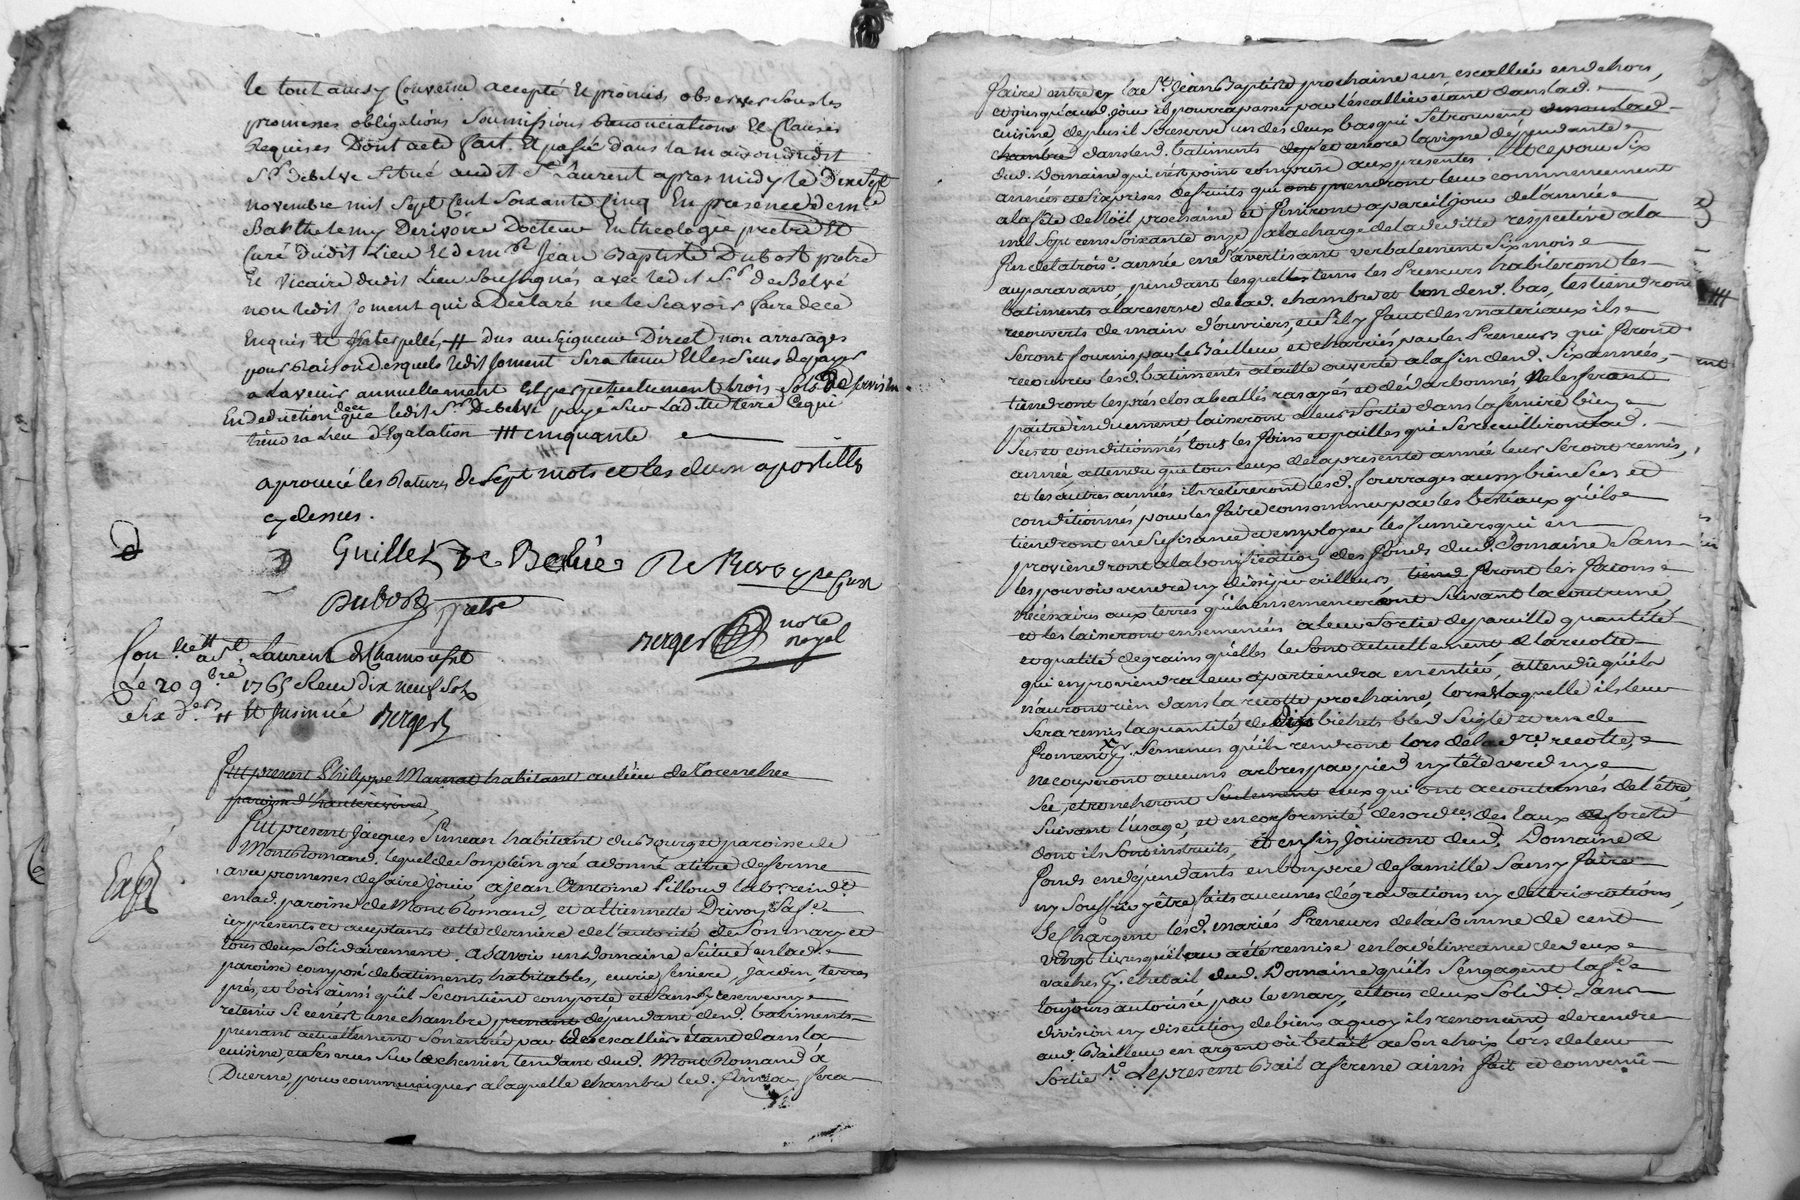 le tout ainsy convenu accepté Et promis observer sous les
promesses obligations Soumissions Renonciations Et Clauses
Requises Dont acte fait Et passé dans la maison dudit
Sr. Debelve Situé audit St. Laurent apres midy le Dixsept
novembre mil Sept Cent Soixante Cinq En presence de mre
Barthelemy Derivoire Docteur En theologie pretre Et
Curé dudit Lieu Et de mre Jean Baptiste Dubost pretre
Et Vicaire dudit Lieu Soussignés avec ledit Sr. de Belvé
non ledit Joment qui a Declaré ne le Scavoir faire de ce
Enquis Et Interpellés # dus au Seigneur Direct non arrerages
pour Raison desquels ledit Joment Sera tenu Et les Siens de payer
a Lavenir annuellement Et perpetuellement trois Sols De servis
En deduction de ce que ledit Sr. Debelvé paye Sur Ladite terre Ce qui
tiendra Lieu d'Egalation ### cinquante
aprouvé les Ratures de Sept mots et les deux apostilles
cy dessus.
Guillet De Belvé De Rivoyre Curé
Dubost pretre
Berger nore Royal
Con.lle a St. Laurent de Chamousset
Le 20 9bre 1765 Reçu dix neuf Sols
et Six d.ers # Et Insinué Berger
Fut present Philippe Marnat habitant au lieu de
paroisse d'hauterivoire
Exp.
Fut present Jacques Simean habitant du Bourg et paroisse de
Mont Romand, lequel de Son plein gré a donné a titre de ferme
avec promesses de faire Jouir a Jean Antoine Pilloud labr. resindt.
en lad. paroisse de Mont Romand, et a Etiennette Drivoy Sa fe.
icy presents et acceptants cette derniere de l'autorité de Son mary et
tous deux Solidairement. a Savoir un Domaine Scitué en lad.
paroisse composé de batiments habitables, ecurie feniere, Jardin, terres
prés, et bois ainsi qu'il Se contient comporte et Sans y reserver ny
retenir Si ce n'est une chambre prenant dépendant desd. batiments
prenant actuellement Son entrée par les escalliers étant dans la
cuisine, et Ses vues Sur le chemin tendant dud. Mont Romand à
Duerne, pour communiquer a laquelle chambre led. Simean fera
faire entre cy la St. Jean Baptiste prochaine un escallier en dehors,
et jusqu'aud. jour il pourra passer par l'escallier étant dans lad.
cuisine de plus il Se reserve un des deux bas qui Se trouvent dans lad.
chambre dans lesd. batiments et encore la vigne dépendante
dud. Domaine qui n'est point comprise aux presentes. Et ce pour Six
années et Six prises de fruits qui prendront leur commencement
a la fête de Noël prochaine et finiront a pareil jour de l'année
mil Sept cens Soixante onze a la charge de la deditte respective a la
fin de la troise. année en S'avertisant verbalement Six mois
auparavant, pendant lesquels tems les Preneurs habiteront les
batiments a la reserve de lad. chambre et l'un desd. bas, les tiendront
recouverts de main d'ouvriers, et S'il y faut des materiaux ils
Seront fournis par le Bailleur et charriés par les Preneurs qui feront
recouvrir lesd. batiments a taille ouverte a la fin desd. Six années,
tiendront les prés clos abeallés rasayés et dédarbonnés, Ne les feront
paitre induement laisseront a leur Sortie dans la feniere bien
Secs et conditionnés tous les foins et pailles qui Se recueilliront lad.
année, attendu que tous ceux de la presente année leur Seront remis,
et les autres années ils retireront lesd. fourrages aussy bien Secs et
conditionnés pour les faire consommer par les bestiaux qu'ils
tiendront en Sufisance et employer les fumiers qui en
proviendront a la bonification des fonds dud. Domaine Sans
les pouvoir vendre ny divertir ailleurs feront les façons
necessaires aux terres qu'ils ensemenceront Suivant la coutume,
et les laisseront ensemencées a leur Sortie de pareille quantité
et qualité de grains qu'elles le Sont actuellement, et la recolte
qui en proviendra leur apartiendra en entier, attendu qu'ils
n'auront rien dans la recolte prochaine, lors de laquelle il leur
Sera remis la quantité de dix bichets bled Seigle et un de
froment Semences qu'ils rendront lors de lade. recolte,
ne couperont aucuns arbres par pied ny tête verd ny
Sec, étroncheront Seulement ceux qui ont accoutumés de l'être
Suivant l'usage, et en conformité des ordces. des Eaux et forets
dont ils Sont instruits, et enfin jouiront dud. Domaine et
fonds en dépendants en bon pere de famille Sans y faire
ny Souffrir y être faits aucunes dégradations ny deteriorations,
Se chargent lesd. mariés Preneurs de la Somme de cent
vingt livres qu'il a été remise en la délivrance de deux
vaches betail dud. Domaine qu'ils S'engagent la fe.
toujours autorisée par le mary, et tous deux Solidt. Sans
division ny discution de biens a quoy ils renoncent de rendre
aud. Bailleur en argent ou betail a Son choix lors de leur
Sortie. Le present Bail a ferme ainsi fait et convenu